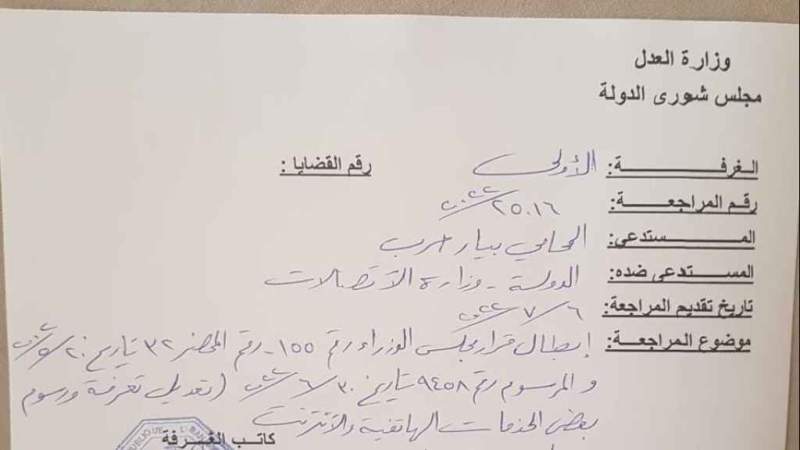 وزارة العدل
مجلس شورى الدولة
الغرفة: الأولى رقم القضايا:
رقم المراجعة: ٢٥٠١٦/٢٠٢٢
المستدعي: المحامي بيار حرب
المستدعى ضده: الدولة - وزارة الاتصالات
تاريخ تقديم المراجعة: ٦/٧/٢٠٢٢
موضوع المراجعة: إبطال قرار مجلس الوزراء رقم ١٥٥ - رقم المحضر ٣٢ تاريخ ٢٠/٥/٢٠٢٢
والمرسوم رقم ٩٤٥٨ تاريخ ٣٠/٦/٢٠٢٢ (تعديل تعرفة ورسوم
بعض الخدمات الهاتفية والانترنت
كاتب الغرفة